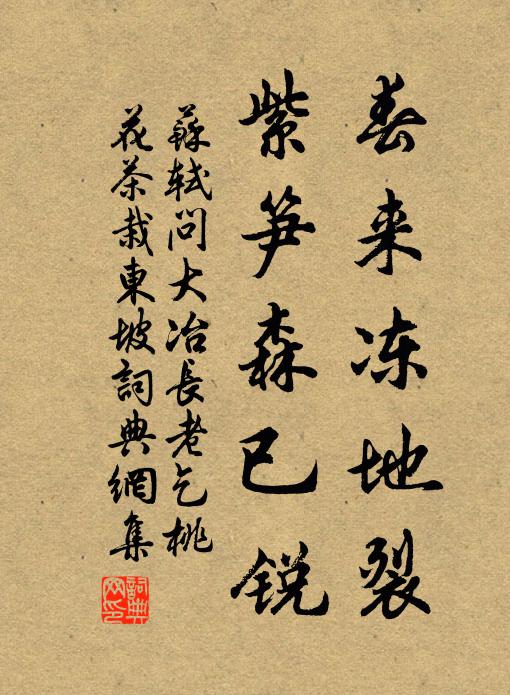 春来冻地裂
紫笋森已锐
蘇軾問大冶長老乞桃
花茶栽東坡詞典網集
詞典網印